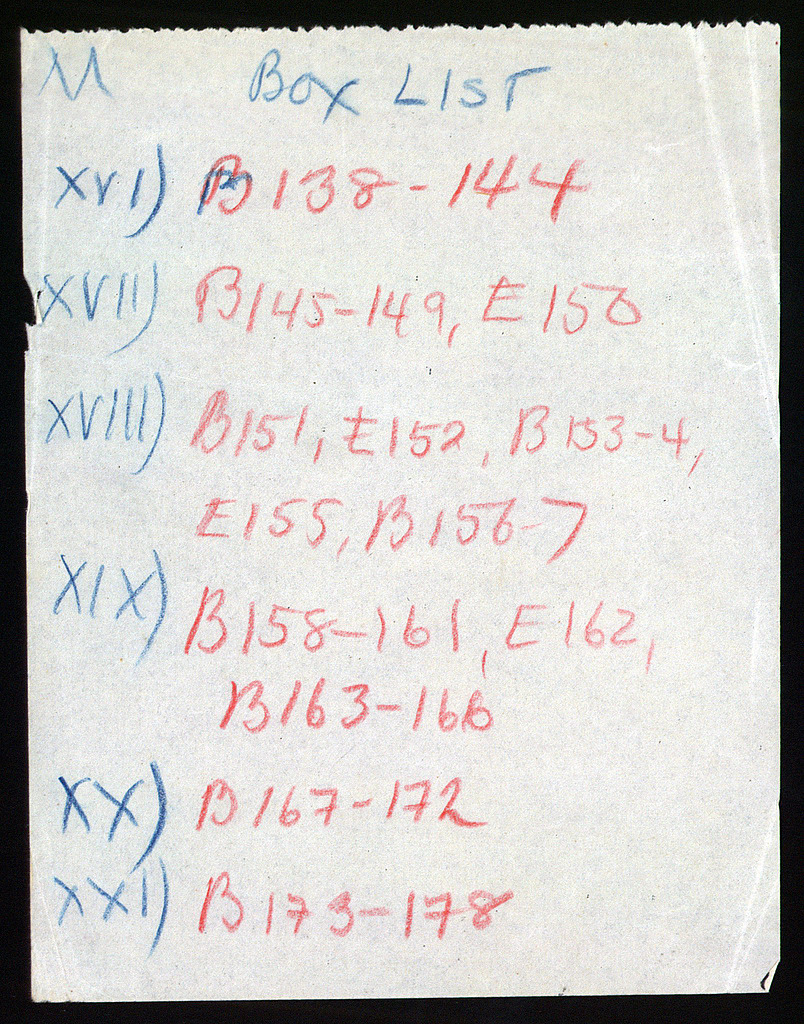 M Box List
XVI) B138-144
XVII) B145-149, E150
XVIII) B151, E152, B153-4,
E155, B156-7
XIX) B158-161, E162,
B163-166
XX) B167-172
XXI) B173-178